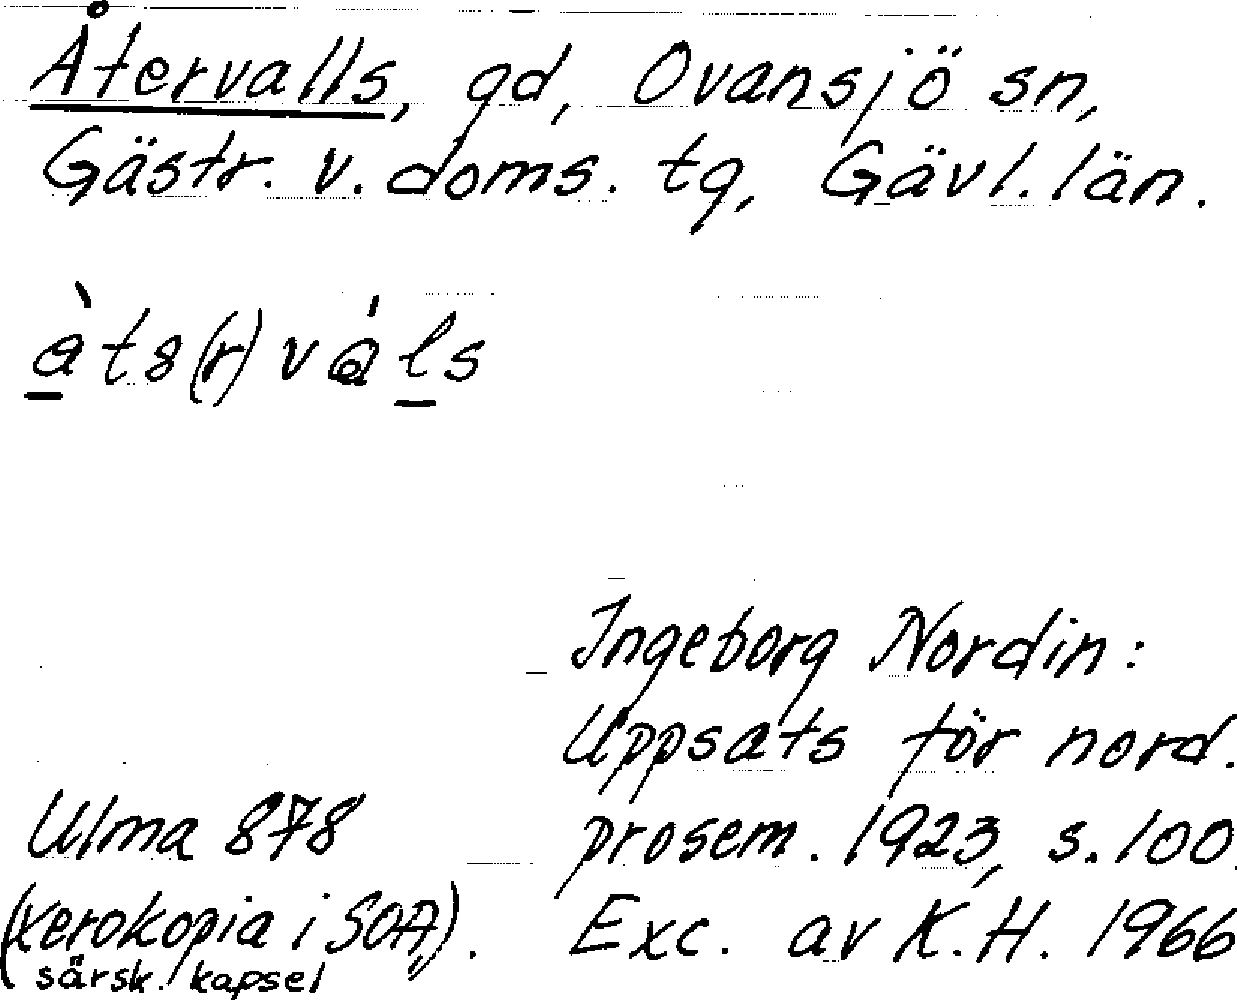 Återvalls, gd, Ovansjö sn,
Gästr. v. doms. tg, Gävl. län.
Ingeborg Nordin:
Uppsats för nord.
prosem. 1923, s. 100.
Exc. av K. H. 1966
Ulma 878
(xerokopia i SOA).
särsk. kapsel